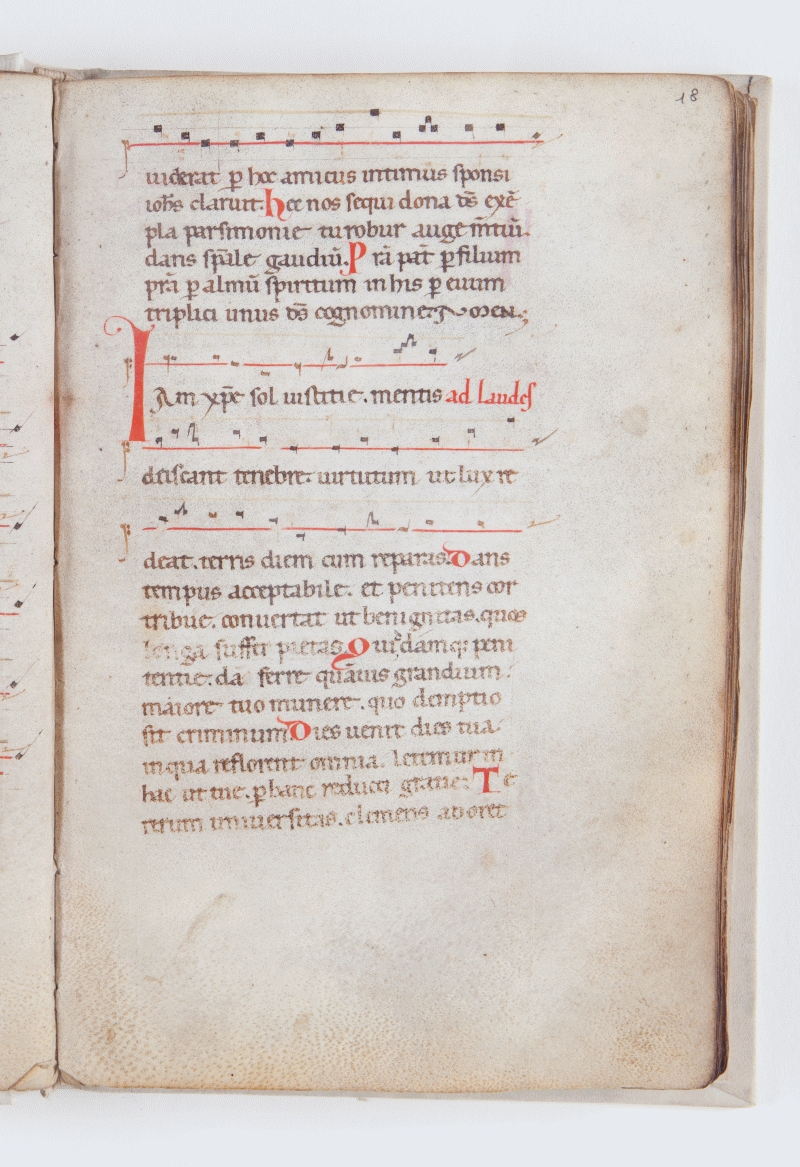 18
uiderat p̄ hoc amicus intimus sponsi
ioh̄s claruit. Hec nos sequi dona d̄s exē
pla parsimonie tu robur auge m̄tiū.
dans sp̄ale gaudiū. P rā pat̄ p̄ filium
prā p̄ almū spiritum in his p̄ euum
triplici unus d̄s cognomine. AMEN.
IAm xp̄e sol iustitie. mentis ad laudes
deiscant tenebre. uirtutum ut lux re
deat. terris diem cum reparas. Dans
tempus acceptabile. et penitens cor
tribue. conuertat ut benignitas. quos
longa suffert pietas. Quidamq; peni
tentie. da ferre quāuis grandium.
maiore tuo munere. quo demptio
sit criminum. Dies uenit dies tua.
in qua reflorent omnia. letemur in
hac ut tue. p̄ hanc reducti gratie. Te
rerum uniuersitas. clemens adoret